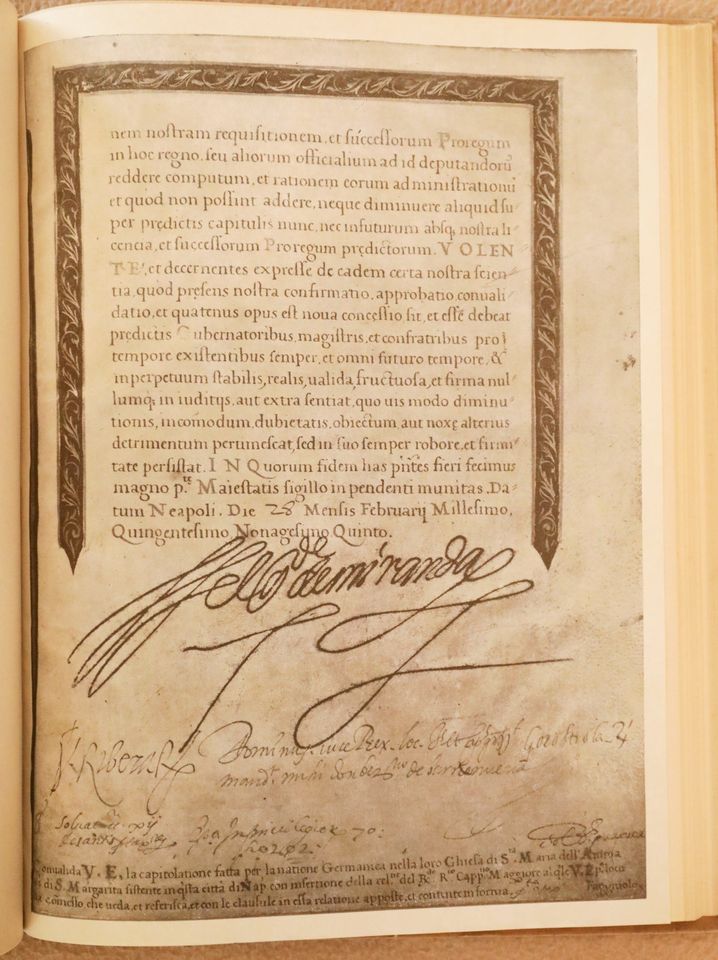 nem nostram requisitionem, et successorum Proregum
in hoc regno, seu aliorum officialium ad id deputandorū
reddere computum, et rationem eorum administrationū
et quod non possint addere, neque diminuere aliquid su
per prędictis capitulis nunc, nec infuturum absq; nostra li
cencia, et successorum Proregum prędictorum. VOLEN
TE, et decernentes expresse de eadem certa nostra scien-
tia, quod pręsens nostra confirmatio, approbatio, conuali
datio, et quatenus opus est noua concessio, sit, et esse debeat
prędictis Gubernatoribus, magistris, et confratribus pro
tempore existentibus semper, et omni futuro tempore, &
inperpetuum stabilis, realis, ualida, fructuosa, et firma nul-
lumq; in iuditijs, aut extra sentiat, quo uis modo diminu-
tionis, incomodum, dubietatis, obiectum, aut noxę alterius
detrimentum pertimescat, sed in suo semper robore, et firmi-
tate persistat. IN Quorum fidem has pn̄tes fieri fecimus
magno p.te Maiestatis sigillo in pendenti munitas. Da-
tum Neapoli. Die 28 Mensis Februarij Millesimo,
Quingentesimo Nonagesimo Quinto.
de miranda
Ribera
Dominus uice Rex. loc.
mand.t mihi
Conualida V. E. la capitolatione fatta per la natione Germanica nella loro Ghiesa di S.ta Maria dell'Anima
di S. Margarita sistente in q̄sta città di Nap. con insertione della rel.ne del R.do R.io Capp.no Maggiore
comesso che ueda, et referisca, et con le clausule in essa relatione apposte, et contente in forma.